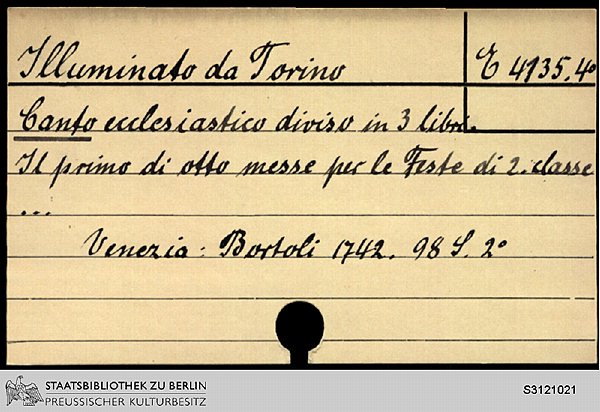 Illuminato da Torino E 4135.4°
Canto ecclesiastico diviso in 3 libri.
Il primo di otto messe per le Feste di 2. classe
...
Venezia: Bortoli 1742. 98 S. 2°
STAATSBIBLIOTHEK ZU BERLIN
PREUSSISCHER KULTURBESITZ
S3121021